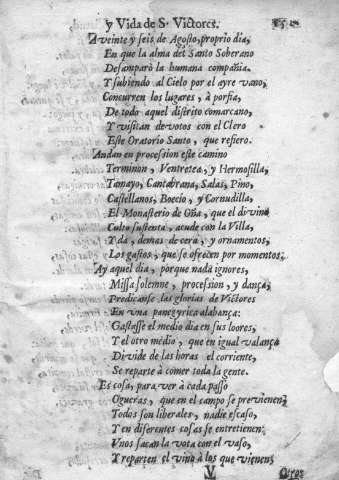 y Vida de S. Victores.
A veinte y seis de Agosto, proprio dia,
En que la alma del Santo Soberano
Desamparò la humana compañia,
Y subiendo al Cielo por el ayre vano,
Concurren los lugares, à porfia,
De todo aquel distrito comarcano,
Y visitan devotos con el Clero
Este Oratorio Santo, que refiero.
Andan en procession este camino
Terminon, Ventretea, y Hermosilla,
Tamayo, Cantabrana, Salas, Pino,
Castellanos, Boecio, y Cornudilla,
El Monasterio de Oña, que el divino
Culto sustenta, acude con la Villa,
Y dà, demas de cera, y ornamentos,
Los gastos, que se ofrecen por momentos.
Ay aquel dia, porque nada ignores,
Missa solemne, procession, y dança,
Predicanse las glorias de Victores
En una panegyrica alabança:
Gastasse el medio dia en sus loores,
Y el otro medio, que en igual valança
Divide de las horas el corriente,
Se reparte à comer toda la gente.
Es cosa, para ver à cada passo
Ogueras, que en el campo se previenen,
Todos son liberales, nadie escaso,
Y en diferentes cosas se entretienen:
Vnos sacan la vota con el vaso,
Y reparten el vino à los que vienen;
V Otros